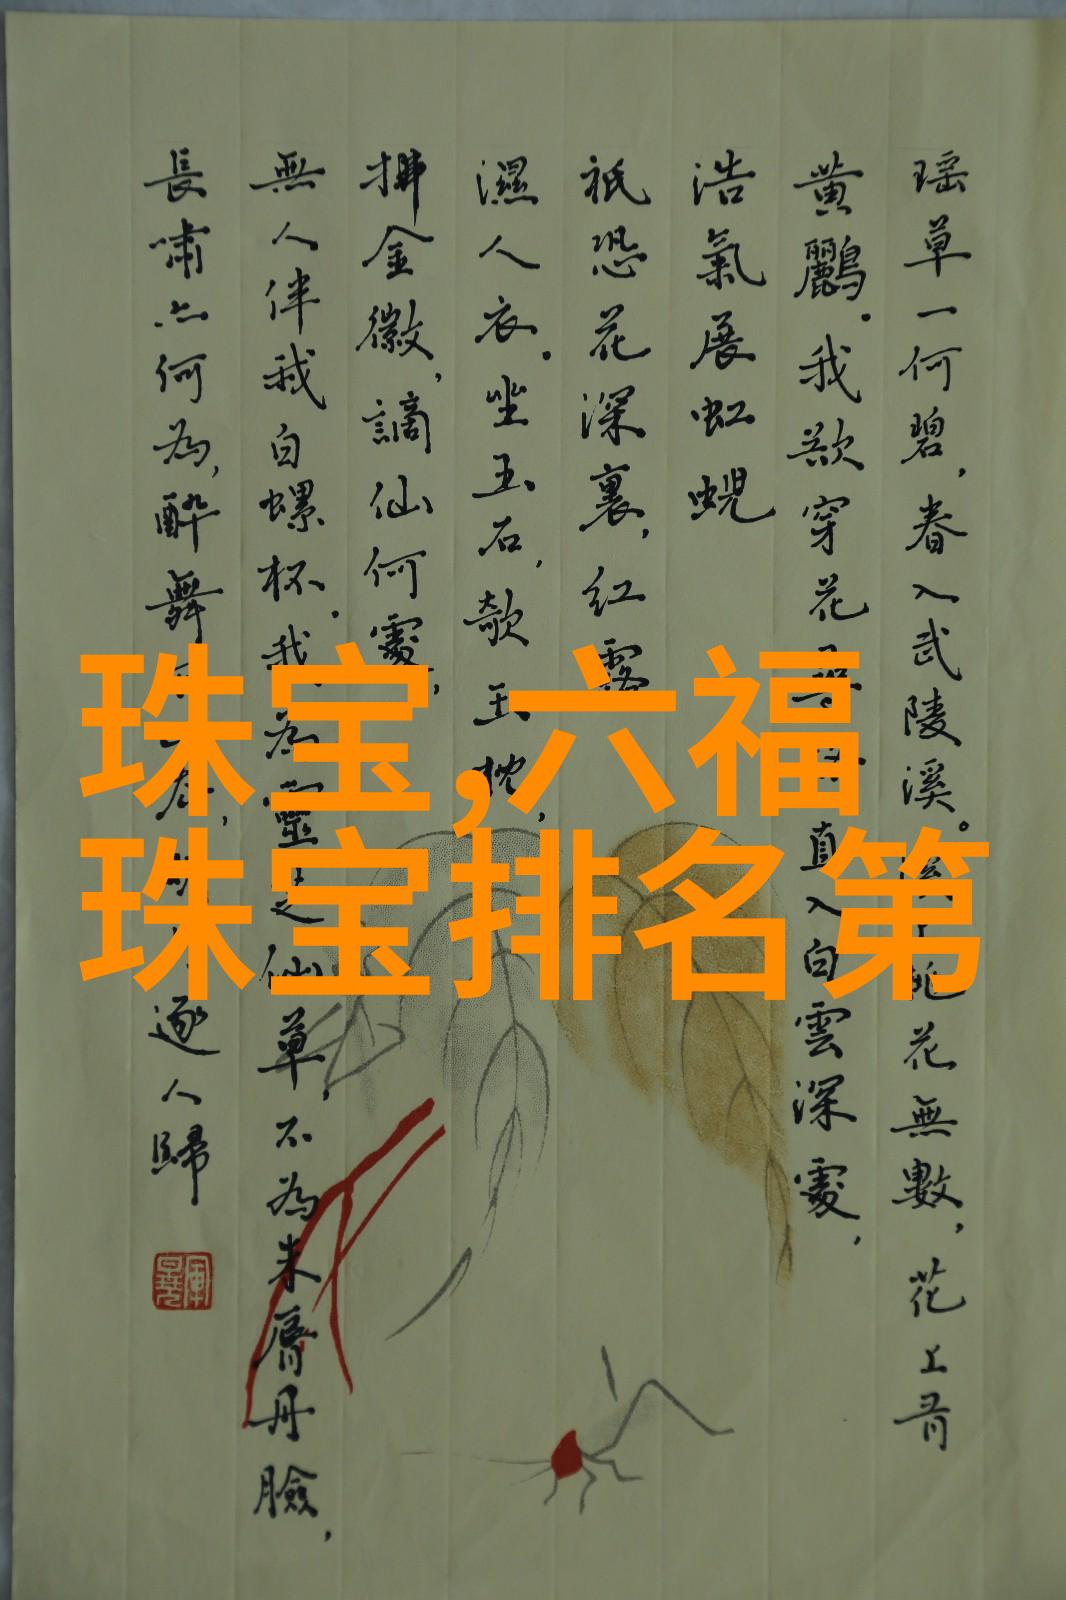 瑶草一何碧，春入武陵溪。花無數，花上有
黄鸝。我欲穿花直入白雲深處，
浩氣展虹蜺
祇恐花深裏，紅露
濕人衣。坐玉石，欹玉枕，
拂金徽，謫仙何處，
無人伴我白螺杯。我為靈芝仙草，不為朱脣丹臉，
長嘯亦何為，醉舞逐人歸
珠宝,六福
珠宝排名第